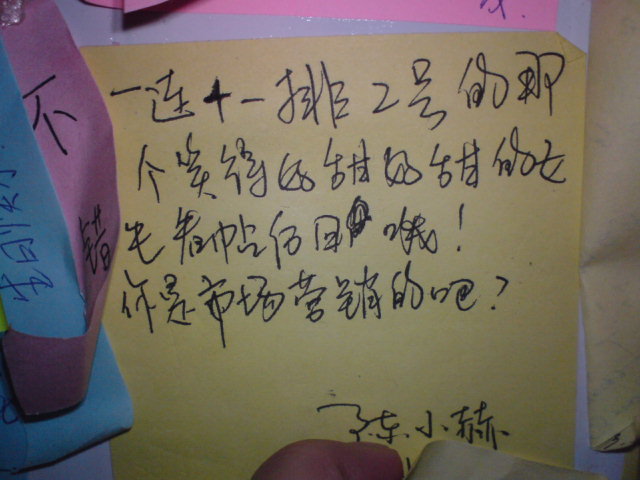 一连十一排2号的那
个笑得好甜好甜的女
生看帖后回哦!
你是市场营销的吧?
陈小赫
不
错